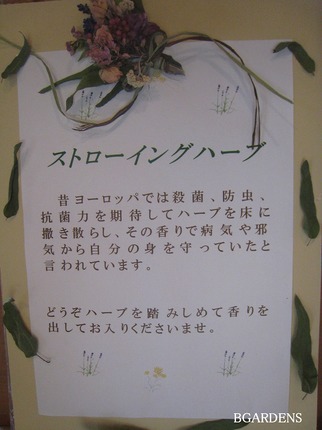 ストローイングハーブ
昔ヨーロッパでは殺菌、防虫、
抗菌力を期待してハーブを床に
撒き散らし、その香りで病気や邪
気から自分の身を守っていたと
言われています。
どうぞハーブを踏みしめて香りを
出してお入りくださいませ。
BGARDENS